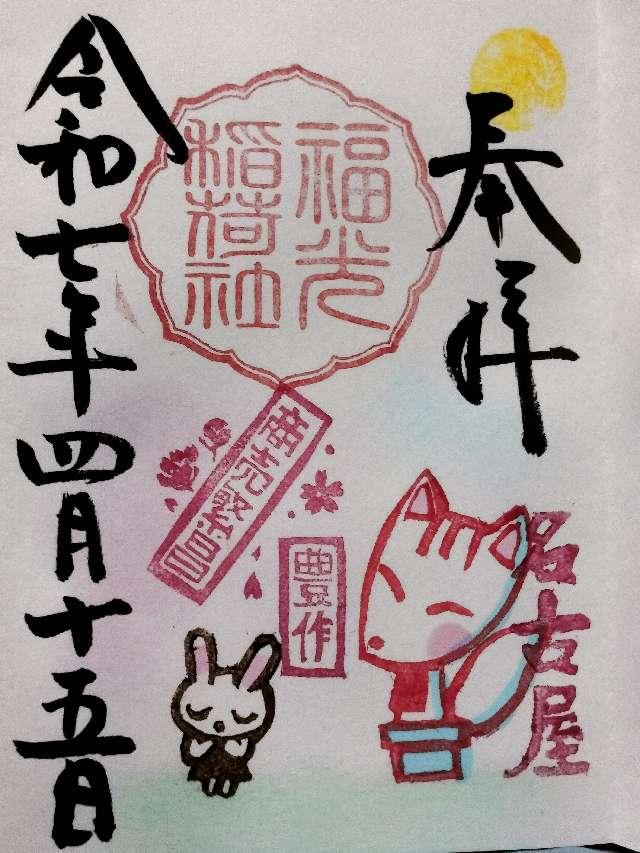 奉拝
福光
稲荷社
商売繁昌
豊作
名古屋
令和七年四月十五日